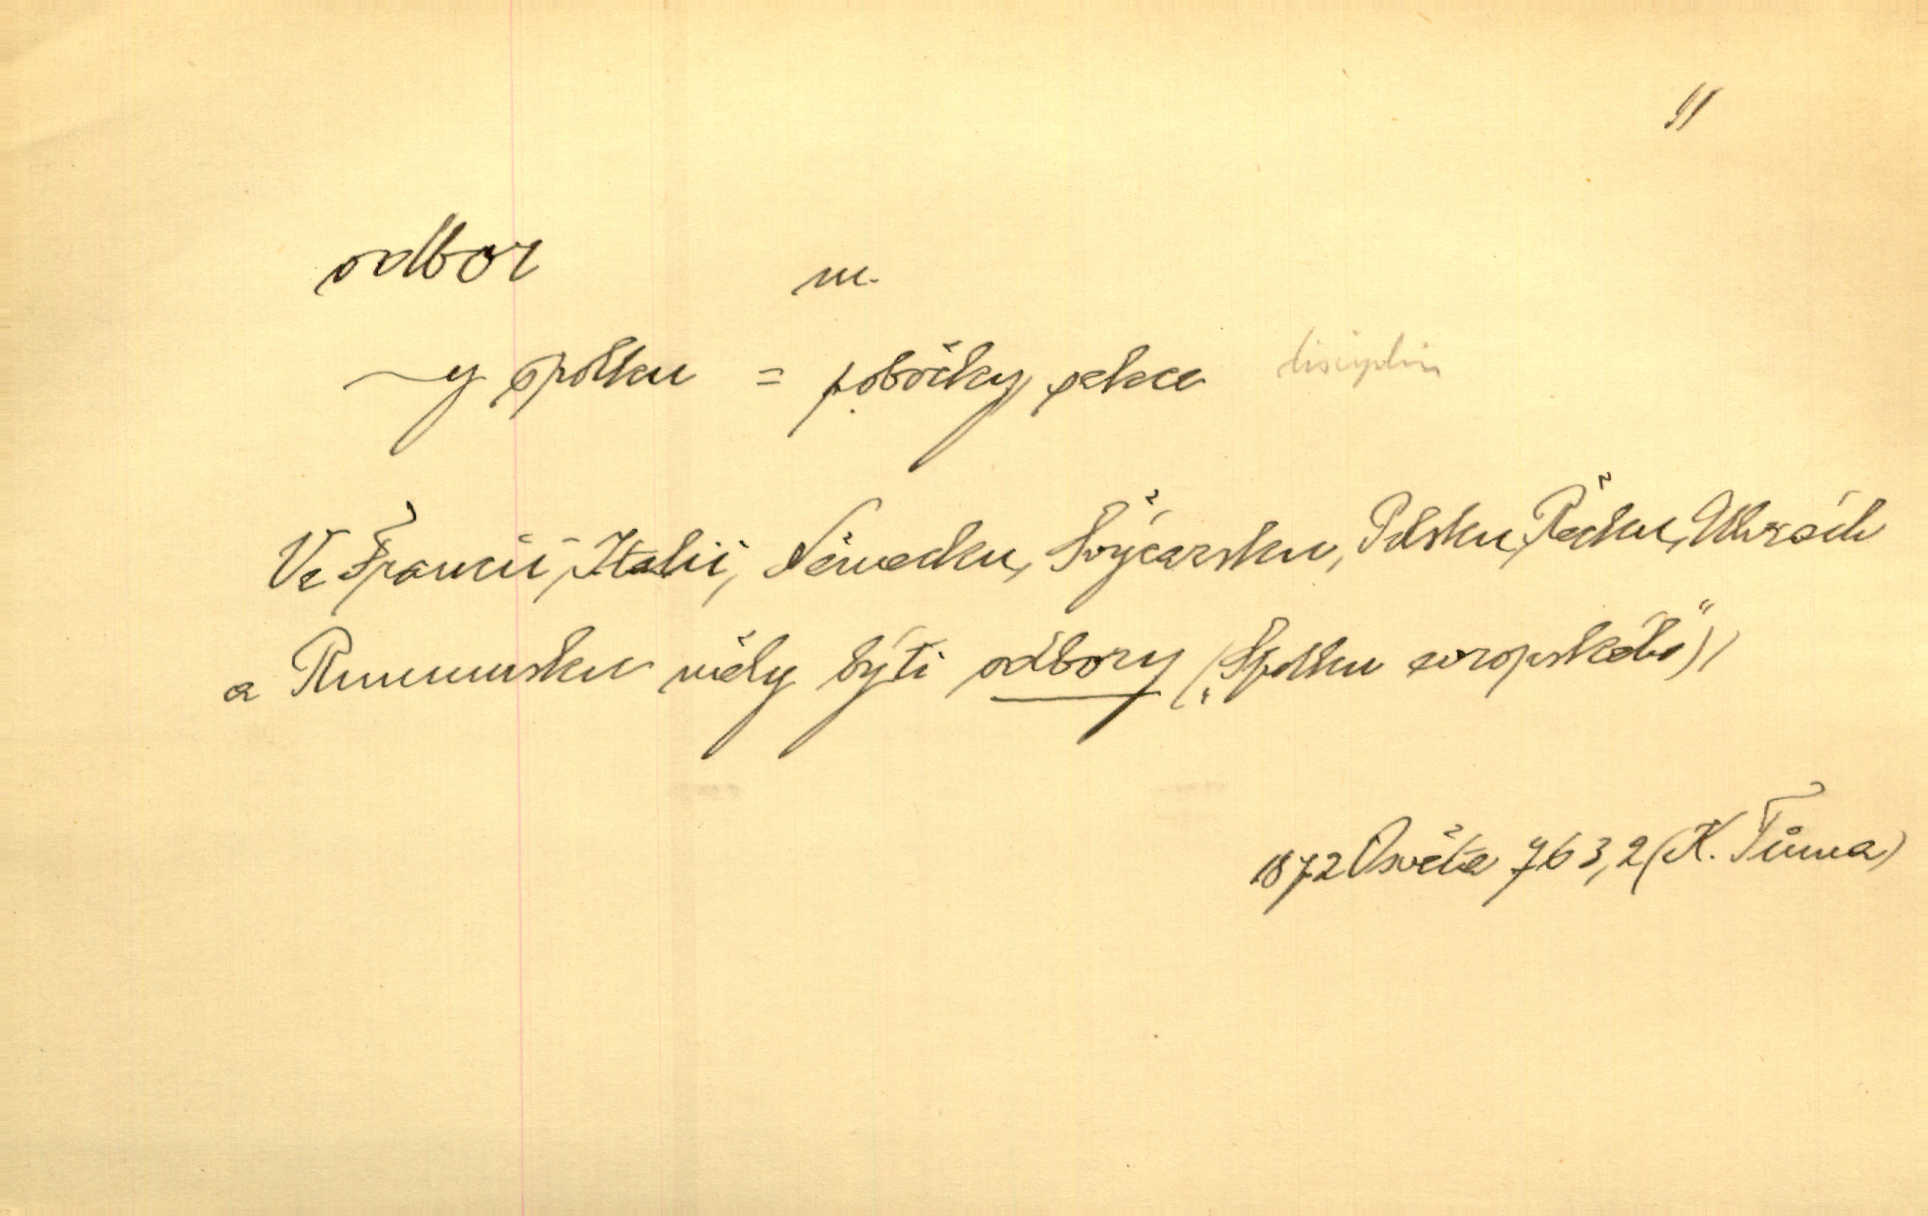 odbor m.
~y spolku = pobočky, sekce disciplin
Ve Francii, Italii, Německu, Švýcarsku, Polsku, Řecku, Uhrách
a Rumunsku měly býti odbory („Spolku evropského“)
1872 Osvěta 763,2 (K. Tůma)